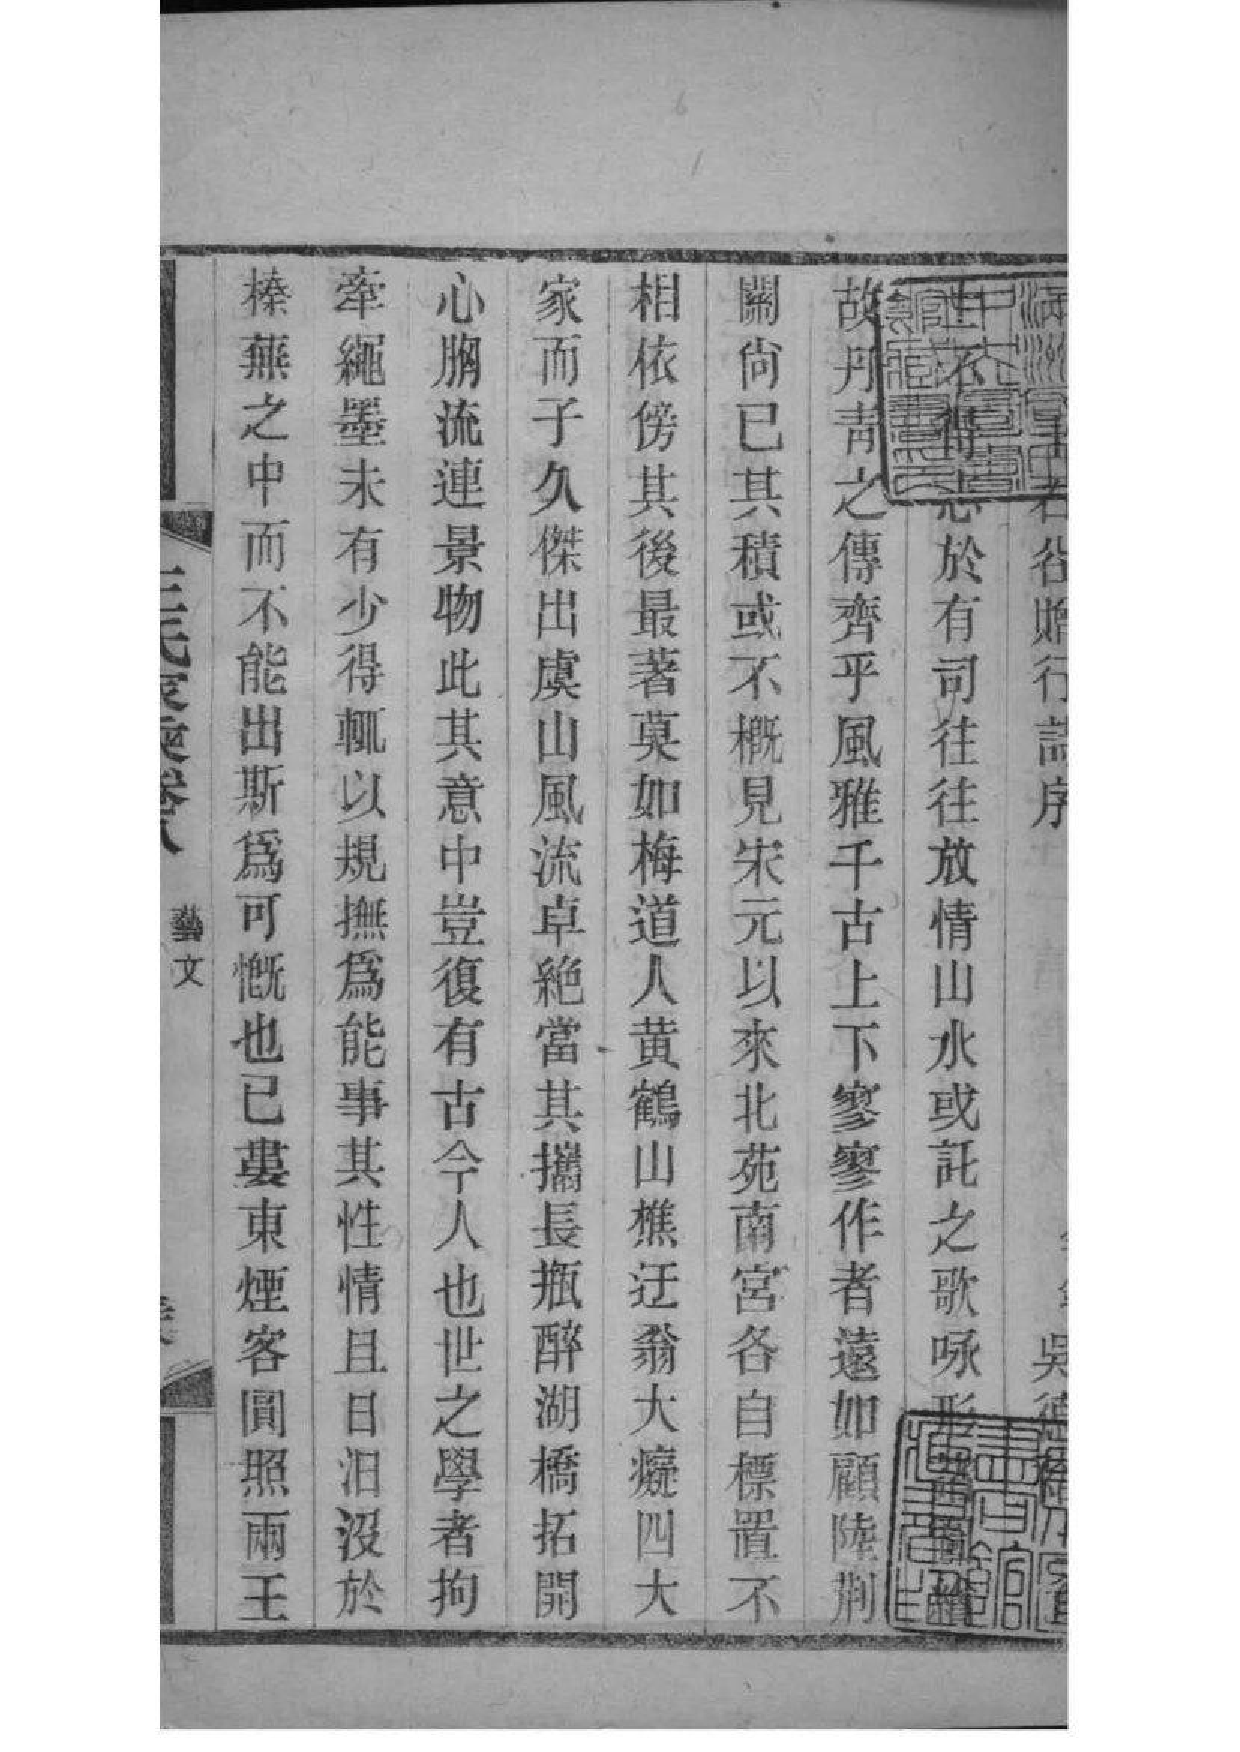 石谷贈行詩序
吳德
士不得志於有司往往放情山水或託之歌咏形諸圖繪
故丹青之傳齊乎風雅千古上下寥寥作者遠如顧陸荆
關尙已其積或不槪見宋元以來北苑南宮各自標置不
相依傍其後最著莫如梅道人黃鶴山樵迂翁大癡四大
家而子久傑出虞山風流卓絶當其攜長瓶醉湖橋拓開
心胸流連景物此其意中豈復有古今人也世之學者拘
牽繩墨未有少得輒以規撫爲能事其性情且日汨沒於
榛蕪之中而不能出斯爲可慨也已婁東煙客圓照兩王
王氏家乘卷八
藝文